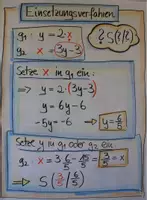 Einsetzungsverfahren
g₁: y = 2·x
g₂: x = (3y-3)
? S(?/?)
Setze x in g₁ ein:
y = 2·(3y-3)
y = 6y-6
-5y = -6 ⇒ y = 6/5
Setze y in g₁ oder g₂ ein
g₂: x = 3·6/5 - 15/5 = 3/5 = x
⇒ S(3/5 | 6/5)